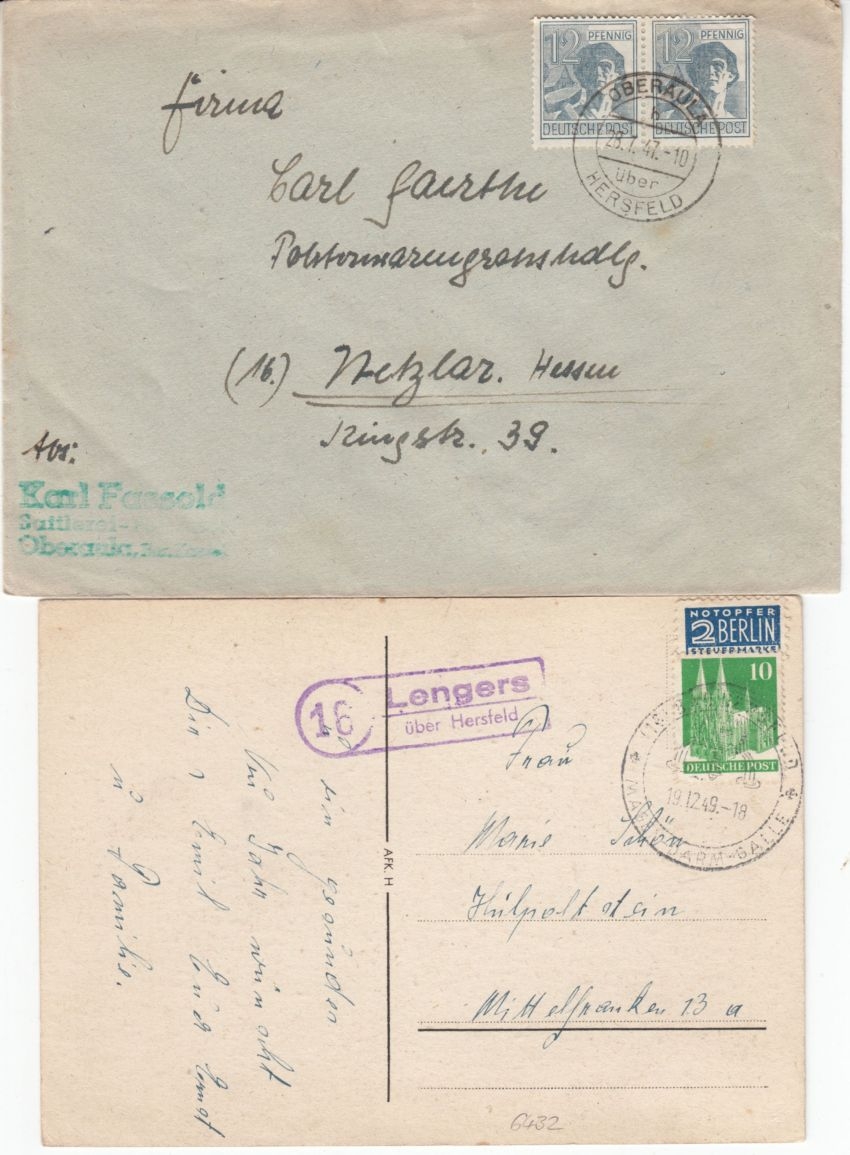 12 PFENNIG
DEUTSCHE POST
12 PFENNIG
DEUTSCHE POST
OBERAULA
b
23.7.47.-10
über
HERSFELD
Firma
Carl Gaerthe
Polsterwarengrosshdlg.
(16.) Wetzlar. Hessen
Ringstr. 39.
Abs:
Karl Fassold
Sattlerei-
Oberaula,
NOTOPFER
2 BERLIN
STEUERMARKE
10
DEUTSCHE POST
19.12.49.-18
DARM-GALLE
16 Lengers
über Hersfeld
Frau
Marie Schön
Hilpoltstein
Mittelfranken 13 a
AFK. H
ein gesundes
Jahr wünscht
Dir Emil
u Familie.
6432